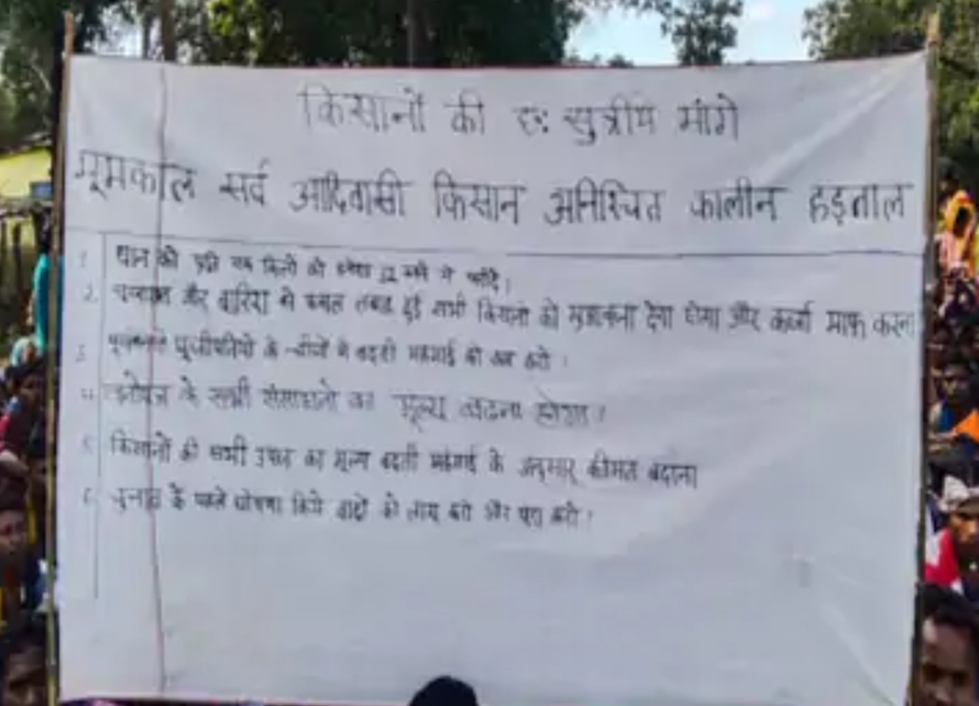 किसानों की छ: सुत्रीय मांगे
भूमकाल सर्व आदिवासी किसान अनिश्चित कालीन हड़ताल
1 धान को प्रति एक किलो को 32 रूपये में खरीदे।
2. और बारिश से फसल हुई सभी किसानों को मुआवजा देना होगा और कर्जा माफ करना
3. पूंजीपतियों के चीजों में बढ़ती महंगाई को कम करो।
4. के सभी संसाधनों का मूल्य बढ़ाना होगा।
5. किसानों की सभी उपज का मूल्य बढ़ती महंगाई के अनुसार कीमत बढ़ाना
6. चुनाव के पहले घोषणा किये वादों को लागू करो और पूरा करो।